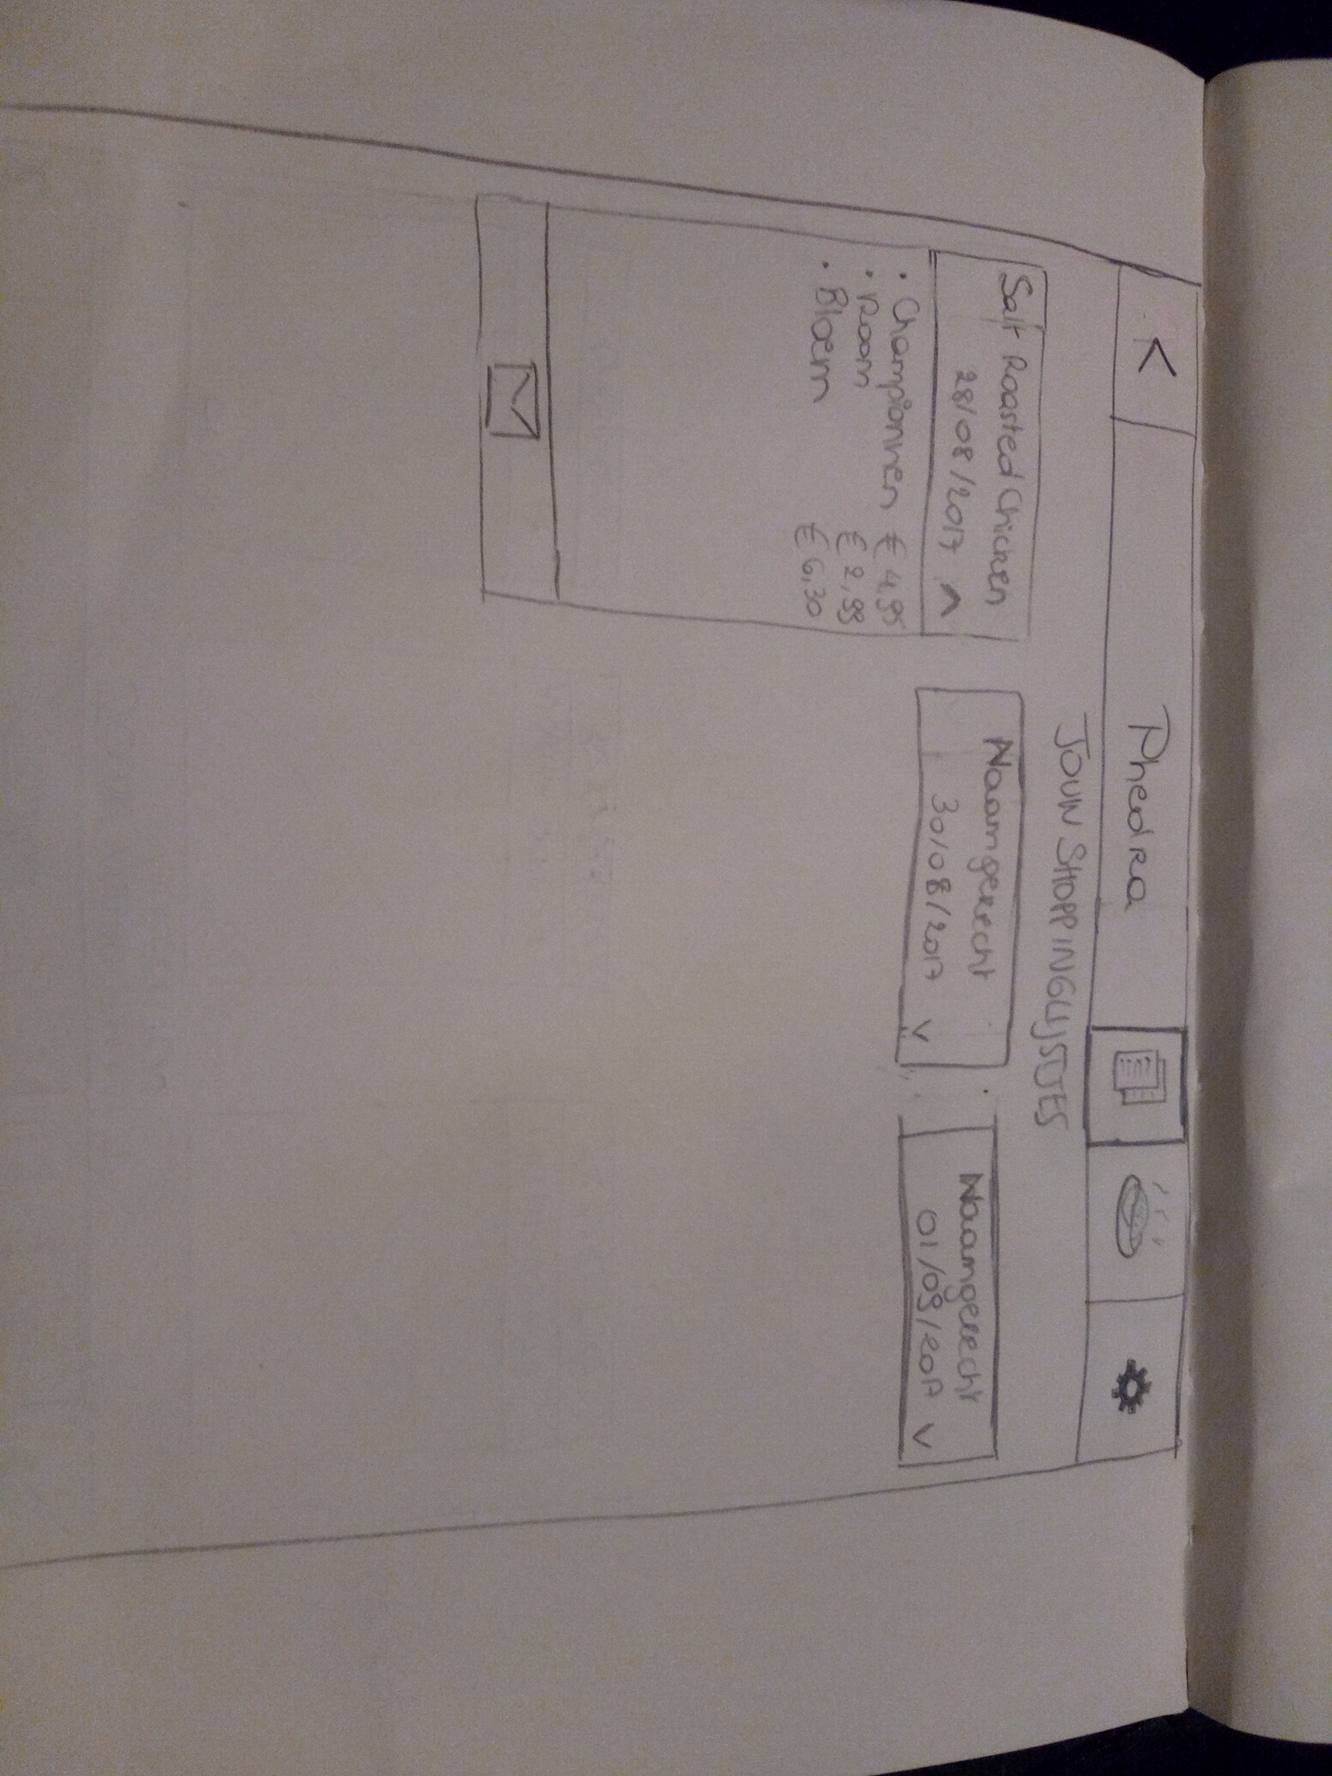 <
Phedra
JOUW SHOPPINGLIJSTJES
Salt Roasted Chicken
28/08/2017
• Championnen € 4,95
• Room € 2,99
• Bloem € 6,30
Naamgerecht
30/08/2017
Naamgerecht
01/09/2017